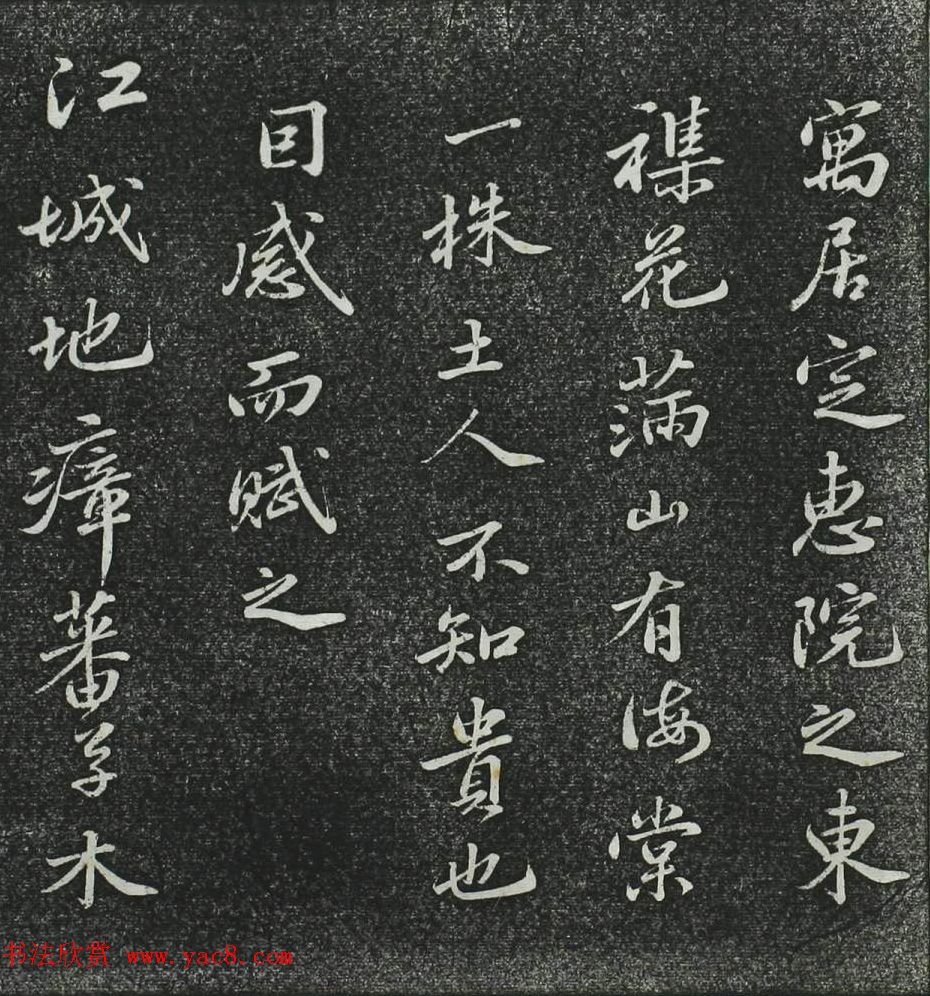 寓居定惠院之東
襍花蒲山有海棠
一株土人不知貴也
因感而賦之
江城地瘴蕃草木
书法欣赏 www.yac8.com